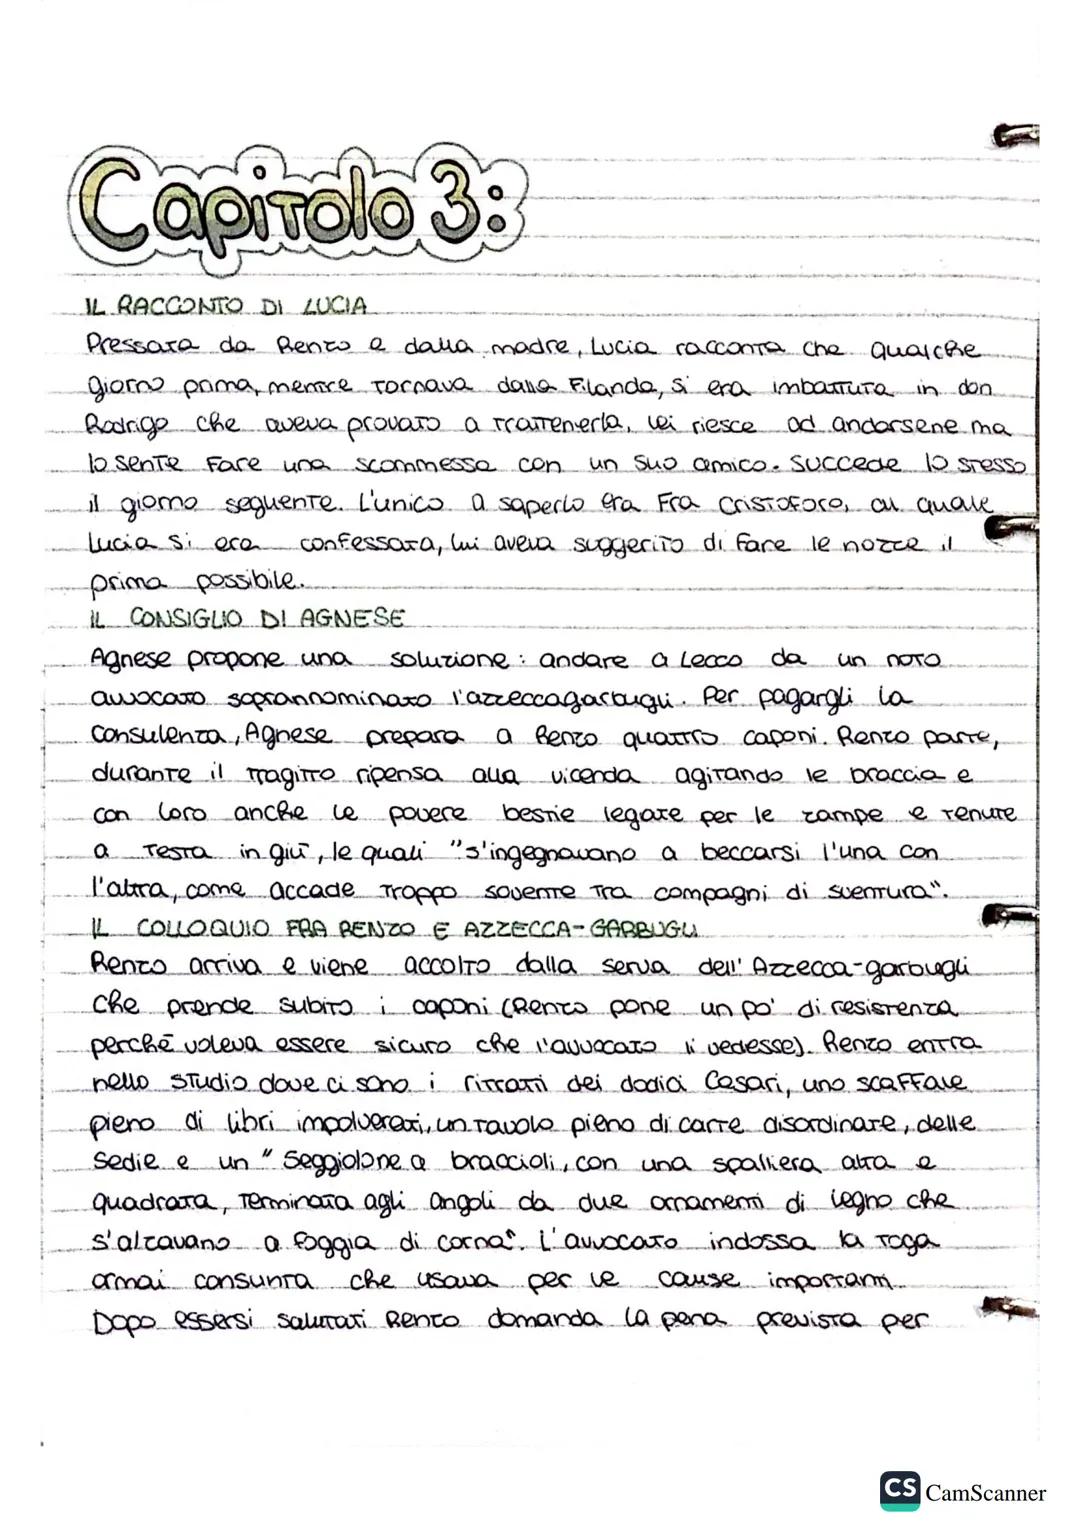 Capitolo 3:
IL RACCONTO DI LUCIA
Pressata da Renzo e dalla madre, Lucia racconta che qualche
giorno prima, mentre tornava dalla Filanda, si era imbattuta in don
Rodrigo che aveva provato a trattenerla, lei riesce ad andarsene ma
lo sente fare una scommessa con un suo amico. Succede lo stesso
il giorno seguente. L'unico a saperlo era Fra Cristoforo, al quale
Lucia si era confessata, lui aveva suggerito di fare le nozze il
prima possibile.
IL CONSIGLIO DI AGNESE
Agnese propone una soluzione: andare a Lecco da un noto
avvocato soprannominato l'azzeccagarbugli. Per pagargli la
consulenza, Agnese prepara a Renzo quattro caponi. Renzo parte,
durante il tragitto ripensa alla vicenda agitando le braccia e
con loro anche le povere bestie legate per le zampe e tenute
a testa in giù, le quali "s'ingegnavano a beccarsi l'una con
l'altra, come accade troppo sovente tra compagni di sventura".
IL COLLOQUIO FRA RENZO E AZZECCA-GARBUGLI
Renzo arriva e viene accolto dalla serva dell'Azzecca-garbugli
che prende subito i caponi (Renzo pone un po' di resistenza
perchè voleva essere sicuro che l'avvocato li vedesse). Renzo entra
nello studio dove ci sono i ritratti dei dodici Cesari, uno scaffale
pieno di libri impolverati, un tavolo pieno di carte disordinate, delle
sedie e un "seggiolone a braccioli, con una spalliera alta e
quadrata, terminata agli angoli da due ornamenti di legno che
s'alzavano a foggia di corna". L'avvocato indossa la toga
ormai consunta che usava per le cause importanti.
Dopo essersi salutati Renzo domanda la pena prevista per
CS CamScanner